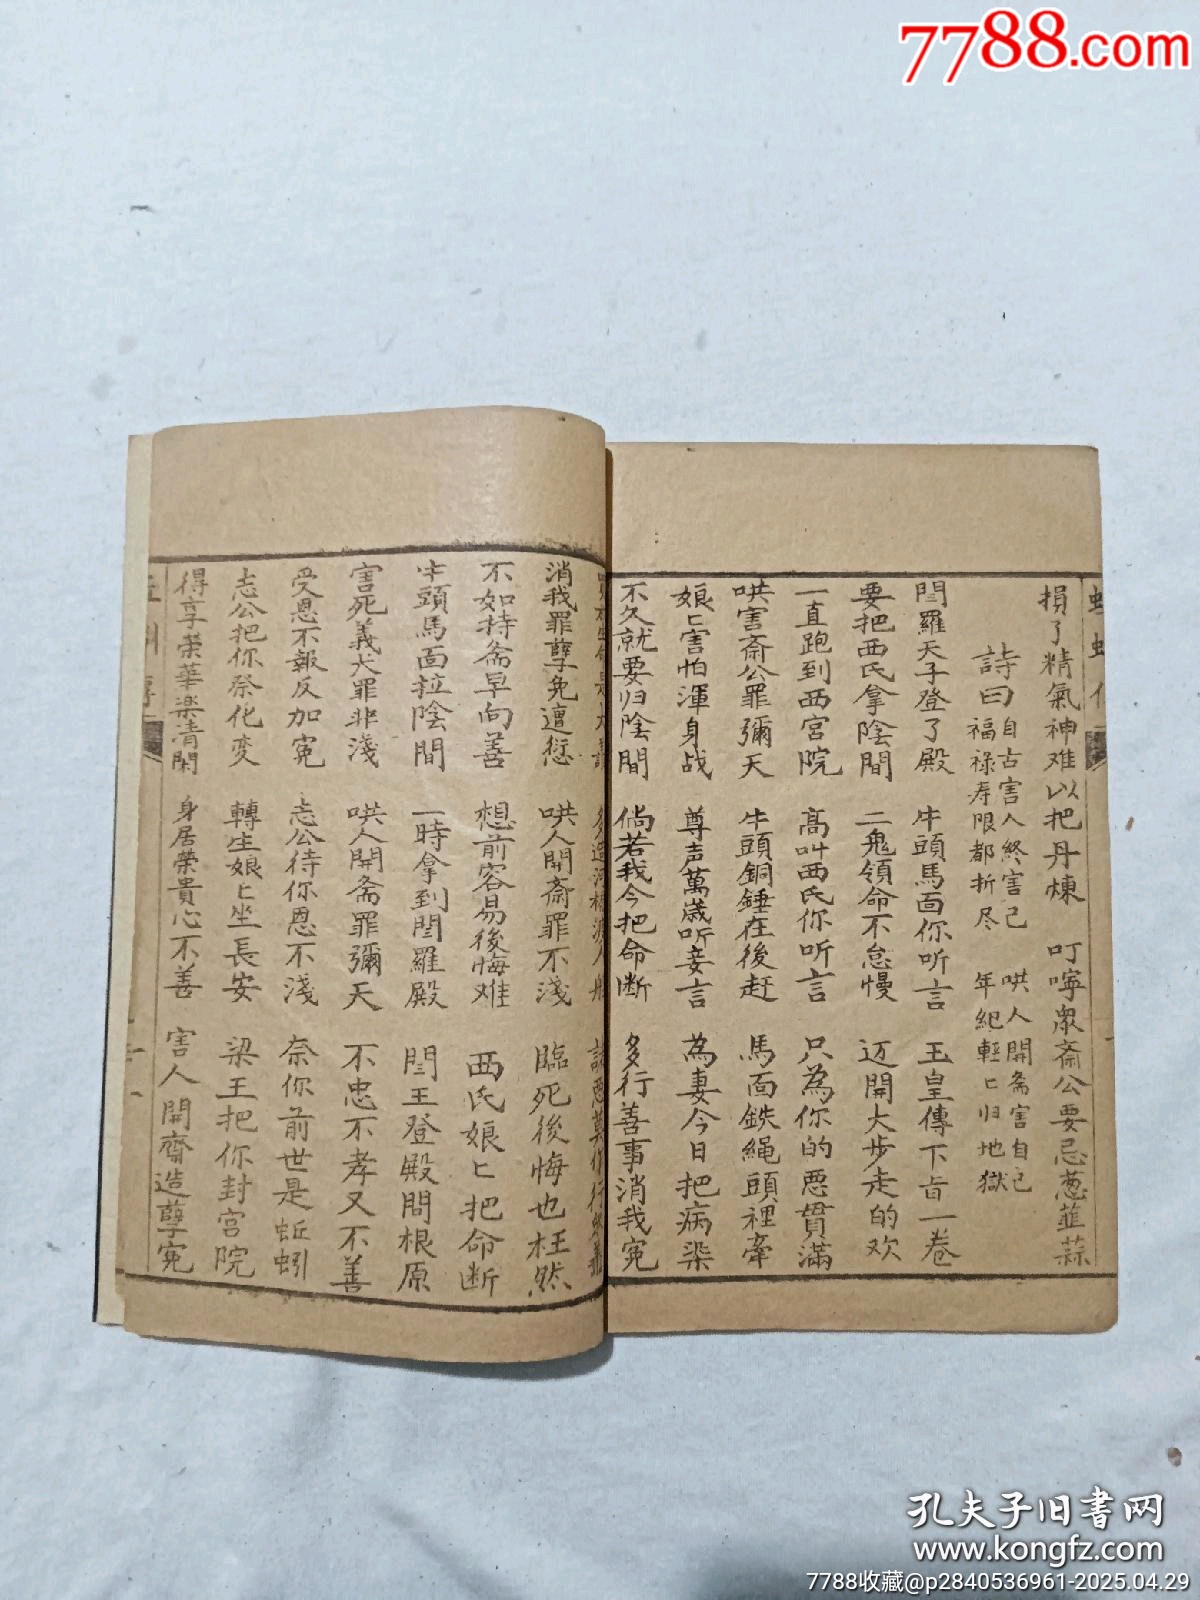 7788.com
損了精氣神难以把丹煉 叮嚀眾斋公要忌葱韮蒜
詩曰 自古害人終害己 哄人開斋害自己
福祿寿限都折尽 年紀輕匕归地獄
閆羅天子登了殿 牛頭馬面你听言 玉皇傳下旨一卷
要把西氏拿陰間 二鬼領命不怠慢 迈開大步走的欢
一直跑到西宮院 高叫西氏你听言 只為你的悪貫滿
哄害斎公罪彌天 牛頭銅錘在後赶 馬面鉄繩頭裡牽
娘匕害怕渾身战 尊声萬歲听妾言 為妻今日把病染
不久就要归陰間 倘若我今把命断 多行善事消我寃
消我罪孽免遭愆 哄人開斎罪不淺 臨死後悔也枉然
不如持斋早向善 想前容易後悔难 西氏娘匕把命断
牛頭馬面拉陰間 一時拿到閆羅殿 閆王登殿問根原
害死義犬罪非淺 哄人開斋罪彌天 不忠不孝又不善
受恩不報反加寃 志公待你恩不淺 奈你前世是蚯蚓
志公把你祭化变 轉生娘匕坐長安 梁王把你封宮院
得享荣華楽清閑 身居荣貴心不善 害人開齋造孽寃
孔夫子旧书网
www.kongfz.com
7788收藏@p2840536961-2025.04.29